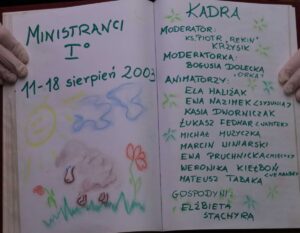 MINISTRANCI
I°
11-18 sierpień 2003
KADRA
MODERATOR:
KS. PIOTR "REKIN"
KRZYSIK
MODERATORKA:
BOGUSIA DOLECKA
"ORKA"
ANIMATORZY:
ELA HALIŻAK
EWA NAZIMEK
KASIA DWORNICZAK
ŁUKASZ FEDWAR (WUNTER)
MICHAŁ MUZYCZKA
MARCIN WINIARSKI
EWA PRUCHNICKA
WERONIKA KIEŁBOŃ
MATEUSZ TABAKA
GOSPODYNI:
ELŻBIETA
STACHYRA